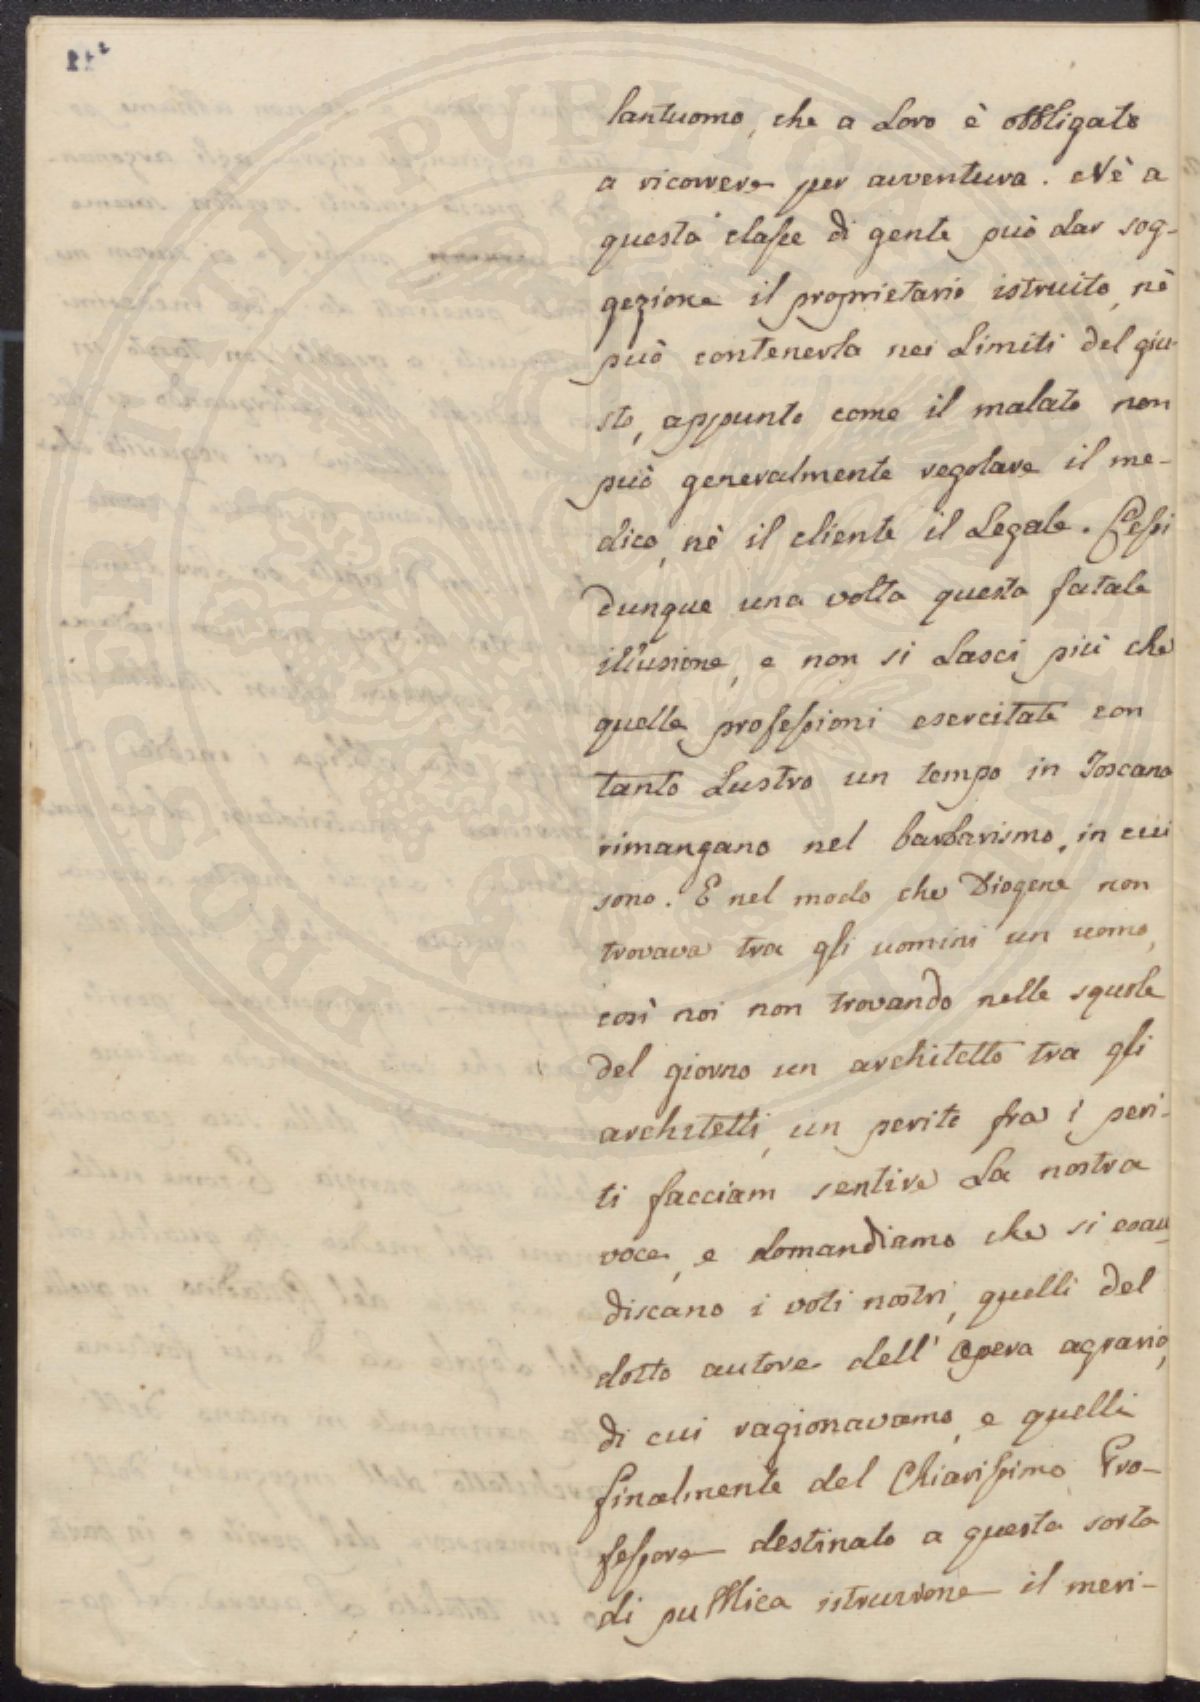 lantuomo, che a Loro è obbligato
a ricorrere per avventura. Nè a
questa classe di gente può dar sog-
gezione il proprietario istruito, nè
può contenerla nei Limiti del giu-
sto, appunto come il malato non
può generalmente regolare il me-
dico, nè il cliente il Legale. Cessi
dunque una volta questa fatale
illusione, e non si Lasci più che
quelle professioni esercitate con
tanto Lustro un tempo in Toscana
rimangano nel barbarismo, in cui
sono. E nel modo che Diogene non
trovava tra gli uomini un uomo,
così noi non trovando nelle squole
del giorno un architetto tra gli
architetti, un perito fra i peri-
ti facciam sentire La nostra
voce, e domandiamo che si esau-
discano i voti nostri, quelli del
dotto autore dell' Opera agraria,
di cui ragionavamo, e quelli
finalmente del Chiarissimo Pro-
fessore destinato a questa sorta
di pubblica istruzione il meri-